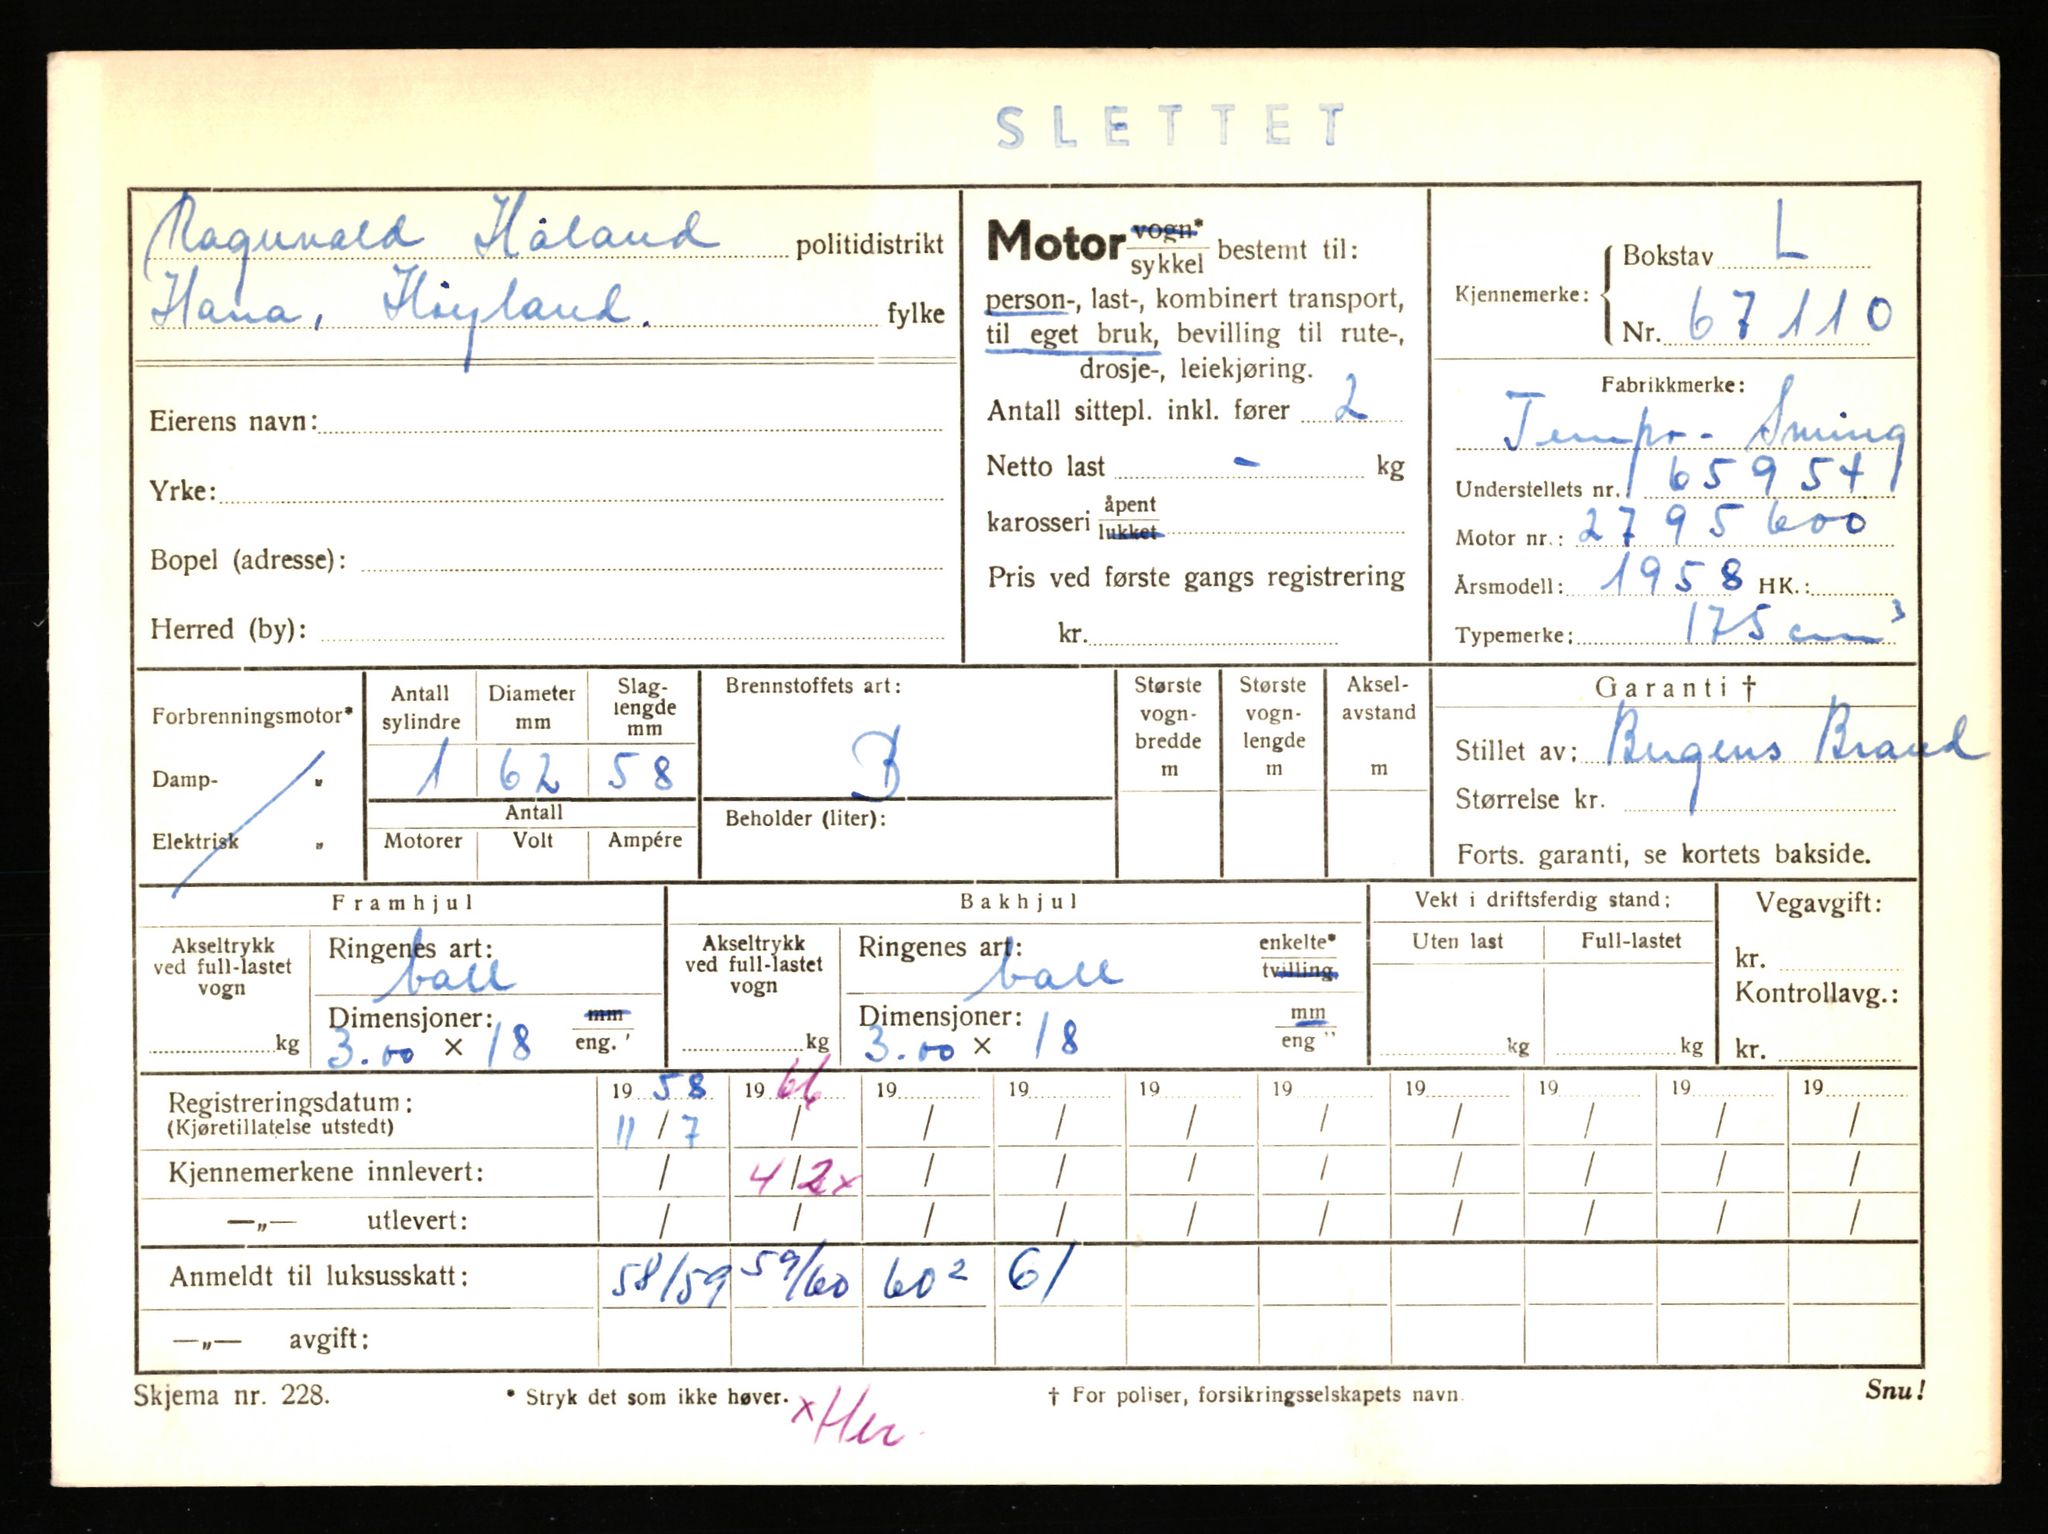 SLETTET
Ragnvald Håland politidistrikt
Hana, Höyland. fylke
Eierens navn:
Yrke:
Bopel (adresse):
Herred (by):
Motor vogn* / sykkel bestemt til:
person-, last-, kombinert transport,
til eget bruk, bevilling til rute-,
drosje-, leiekjøring.
Antall sittepl. inkl. fører 2
Netto last - kg
karosseri åpent / lukket
Pris ved første gangs registrering
kr.
Kjennemerke: Bokstav L
Nr. 67110
Fabrikkmerke:
Tempo - Swing
Understellets nr. 1659541
Motor nr.: 2795600
Årsmodell: 1958 HK.:
Typemerke: 175 cm³
Forbrenningsmotor*
Damp- „
Elektrisk „
Antall sylindre 1
Diameter mm 62
Slag-lengde mm 58
Antall
Motorer Volt Ampére
Brennstoffets art:
B
Beholder (liter):
Største vogn-bredde m
Største vogn-lengde m
Aksel-avstand m
Garanti †
Stillet av: Bergens Brand
Størrelse kr.
Forts. garanti, se kortets bakside.
Framhjul
Akseltrykk ved full-lastet vogn
kg
Ringenes art: ball
Dimensjoner: mm / eng. '
3.00 × 18
Bakhjul
Akseltrykk ved full-lastet vogn
kg
Ringenes art: ball enkelte* / tvilling
Dimensjoner: mm / eng "
3.00 × 18
Vekt i driftsferdig stand:
Uten last Full-lastet
kg kg
Vegavgift:
kr.
Kontrollavg.:
kr.
Registreringsdatum: 19 58 19 66 19 19 19 19 19 19 19 19
(Kjøretillatelse utstedt) 11 / 7 / / / / / / / / /
Kjennemerkene innlevert: / 4/2x / / / / / / / /
—„— utlevert: / / / / / / / / / /
Anmeldt til luksusskatt: 58/59 59/60 60² 61
—„— avgift:
Skjema nr. 228. * Stryk det som ikke høver. † For poliser, forsikringsselskapets navn. Snu!
x Her